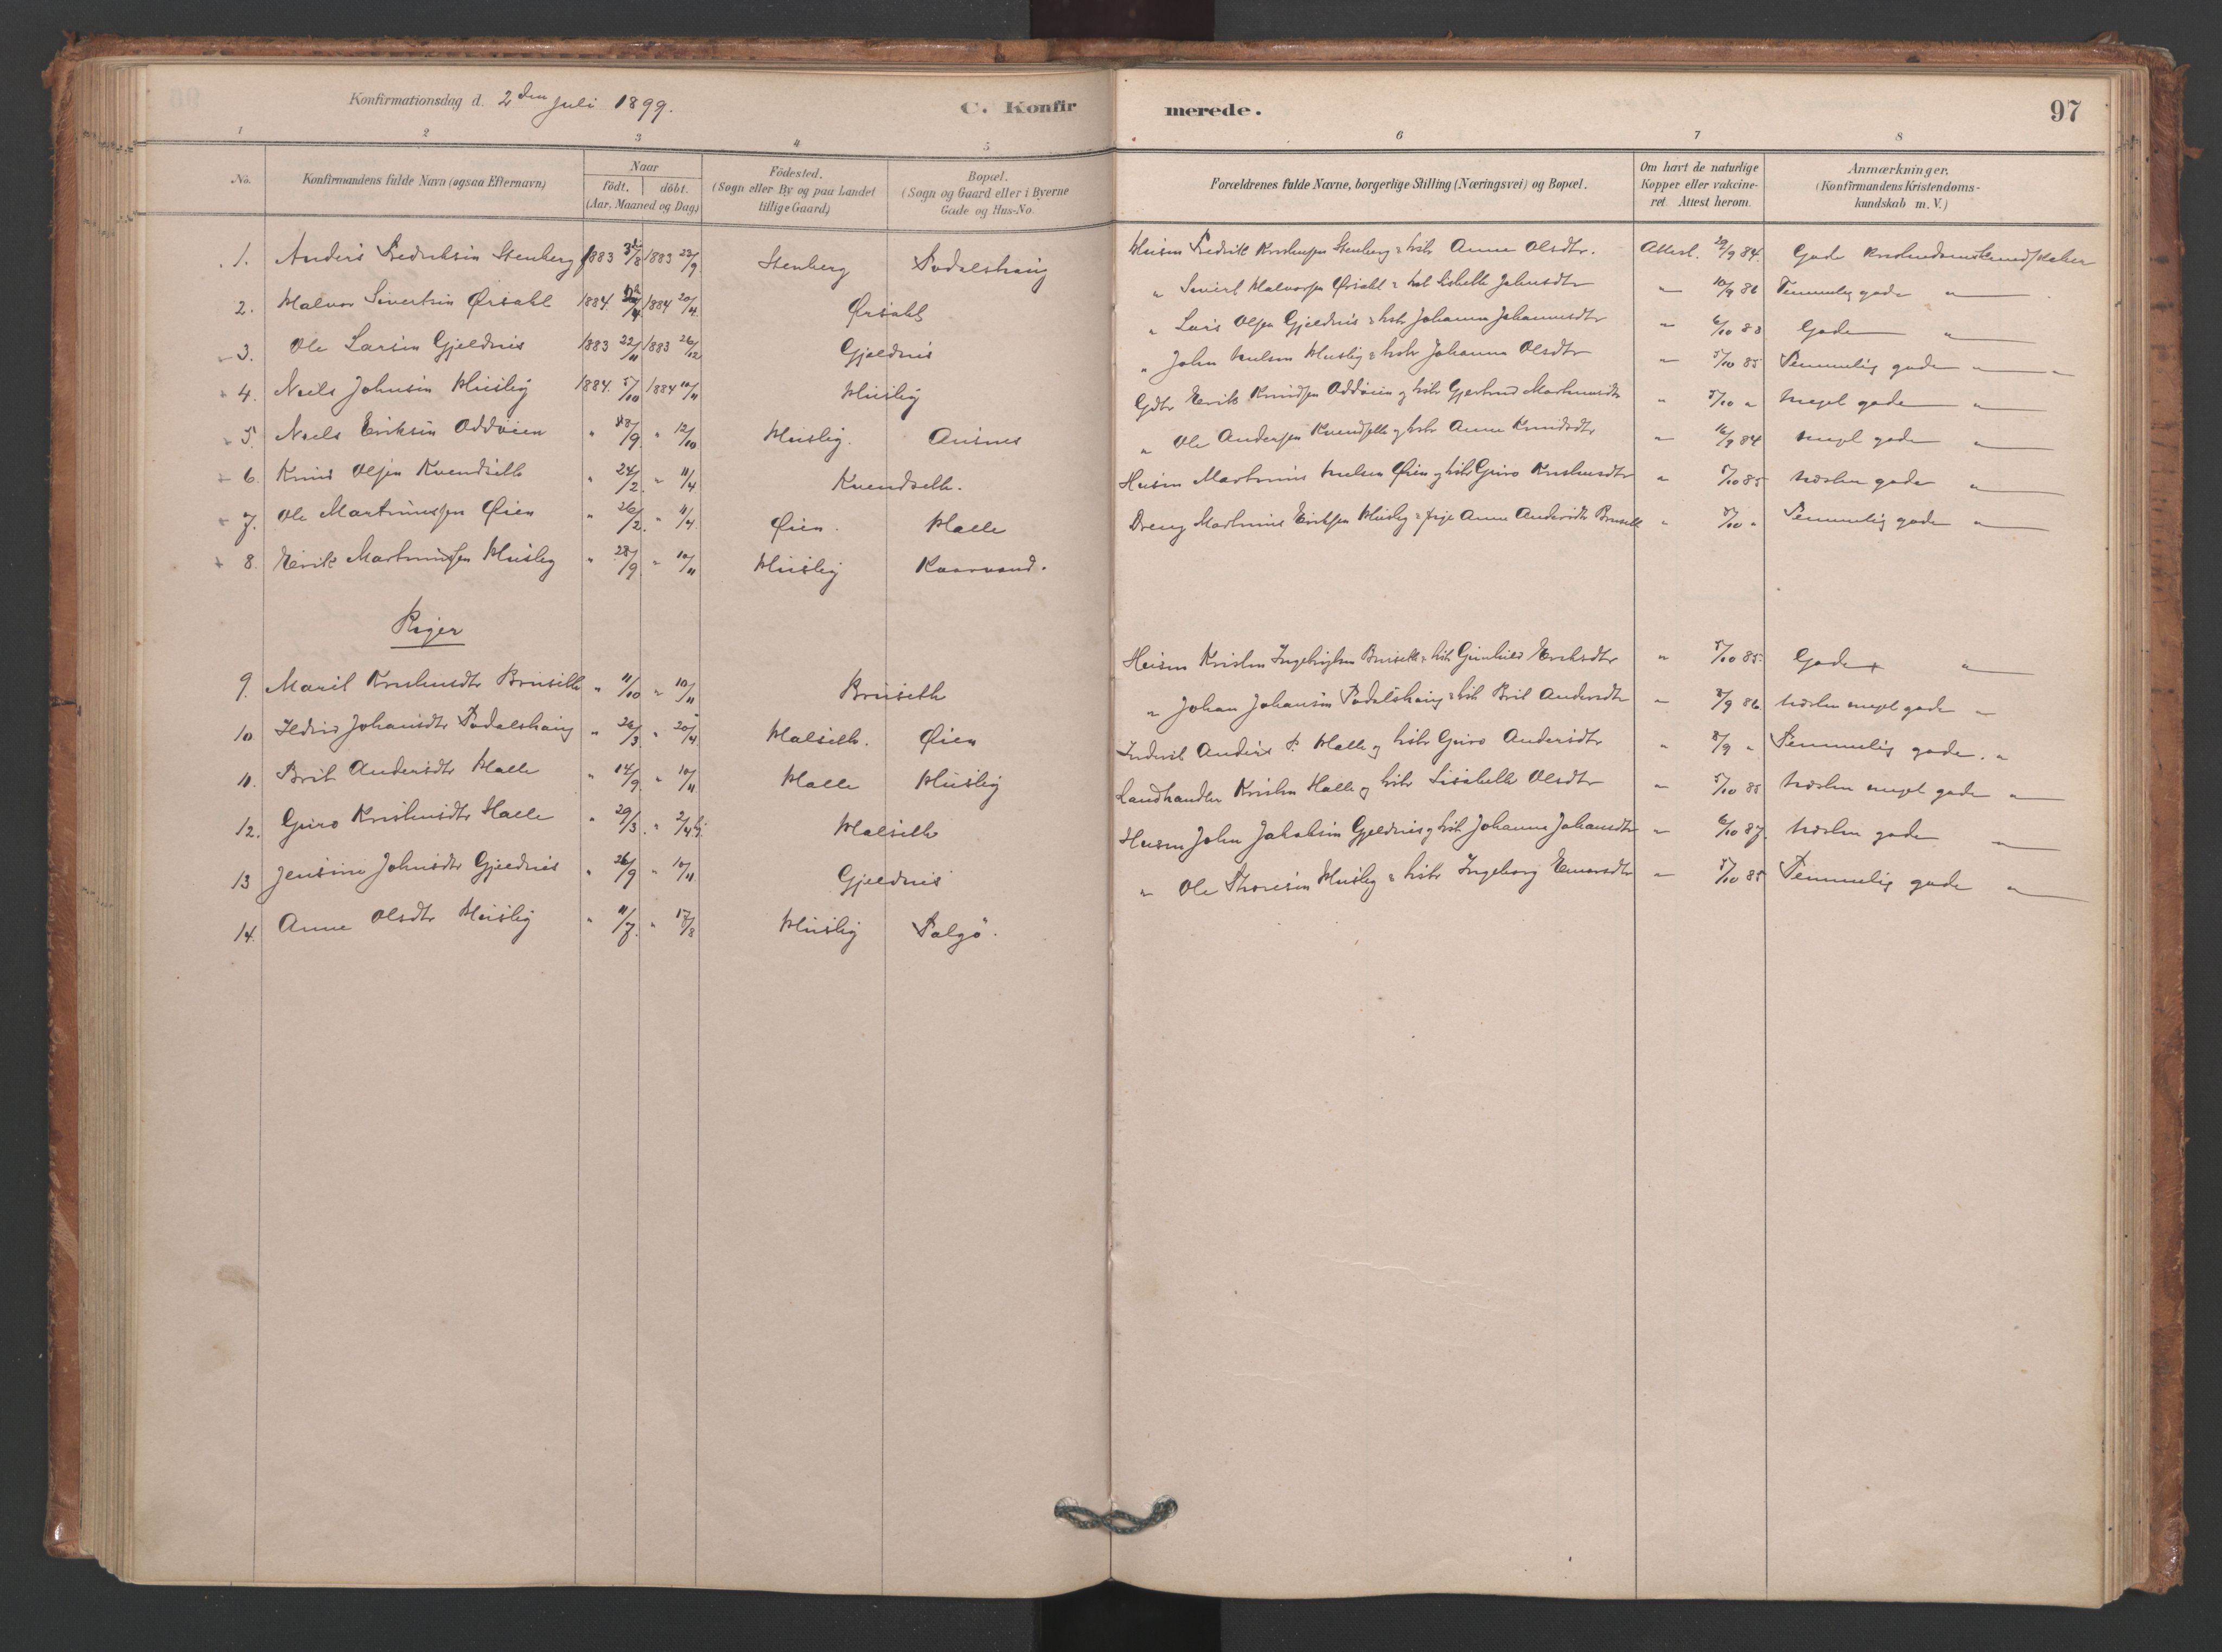 Konfirmationsdag d. 2den Juli 1899.
C. Konfir
merede.
97
1 2 3 4 5 6 7 8
No.
Konfirmandens fulde Navn (ogsaa Efternavn)
Naar
födt. döbt.
(Aar, Maaned og Dag)
Födested.
(Sogn eller By og paa Landet
tillige Gaard)
Bopæl.
(Sogn og Gaard eller i Byerne
Gade og Hus-No.
Forældrenes fulde Navne, borgerlige Stilling (Næringsvei) og Bopæl.
Om havt de naturlige
Kopper eller vakcine-
ret. Attest herom.
Anmærkninger.
(Konfirmandens Kristendoms-
kundskab m. V.)
1. Anders Fredriksen Stenberg 1883 /8 1883 23/9 Stenberg Todalshaug Husm Fredrik Stenberg & hstr Anne Olsdtr. Attest. /9 84. Gode Kristendomskundskaber
2. Halvor Sivertsen Ørsahl 1884 /4 1884 20/4 Ørsahl " Sivert Halvorsen Ørsahl & Johnsdtr " 10/9 86 Temmelig gode "
3. Ole Larsen Gjeldnes 1883 22/11 1883 26/12 Gjeldnes " Lars Olsen Gjeldnes & hstr Johanna Johannesdtr " 6/10 83 Gode "
4. Neils Johnsen Husby 1884. 5/10 1884 10/11 Husby " John Nielsen Husby & hstr Johanna Olsdtr " 5/10 85 Temmelig gode "
5. Neils Eriksen Oddøien " /9 " 12/10 Husby. Ausnes Gdbr Erik Knudsen Oddøien og hstr Gjertrud Martinusdtr " 5/10 " Meget gode "
6. Knud Olsen Kvendseth " 24/2 " 11/4 Kvendseth. " Ole Andersen Kvendseth og hstr Anne Knudsdtr " 16/9 84 meget gode "
7. Ole Martinussen Øien " 26/2 " 11/4. Øien. Halle Husm Martinus Nielsen Øien og hstr Guro Kristensdtr " 5/10 85 næsten gode "
8. Erik Martinussen Husby " 28/9 " 10/11 Husby Kaarvand. Dreng Martinus Eriksen Husby & pige Anne Andersdtr Bruseth " 5/10 " Temmelig gode "
Piger
9. Marit Kristensdtr Bruseth " 11/10 " 10/11 Bruseth Husm Kristen Ingebrigtsen Bruseth & hstr Gunhild Eriksdtr " 5/10 85 Gode "
10 Ildrid Johansdtr Todalshaug " 26/3 " 20/4 Halseth. Øien " Johan Johansen Todalshaug & hstr Brit Andersdtr " 8/9 86 næsten meget gode "
11. Brit Andersdtr Halle " 14/9 " 10/11 Halle Husby Inderst Anders P. Halle og hstr Guro Andersdtr " 8/9 " Temmelig gode. "
12. Guro Kristensdtr Halle " 29/3 " 2/4 hj. Halseth Landhandler Kristen Halle og hstr Lisabeth Olsdtr " 5/10 85 næsten meget gode "
13 Jensine Johnsdtr Gjeldnes " 26/9 " 10/11 Gjeldnes Husm John Jakobsen Gjeldnes og hstr Johanna Johansdtr " 6/10 87. næsten gode "
14. Anne Olsdtr Husby " 11/7. " 17/8 Husby Talgö. " Ole Thoresen Husby & hstr Ingeborg Einarsdtr " 5/10 85 Temmelig gode "